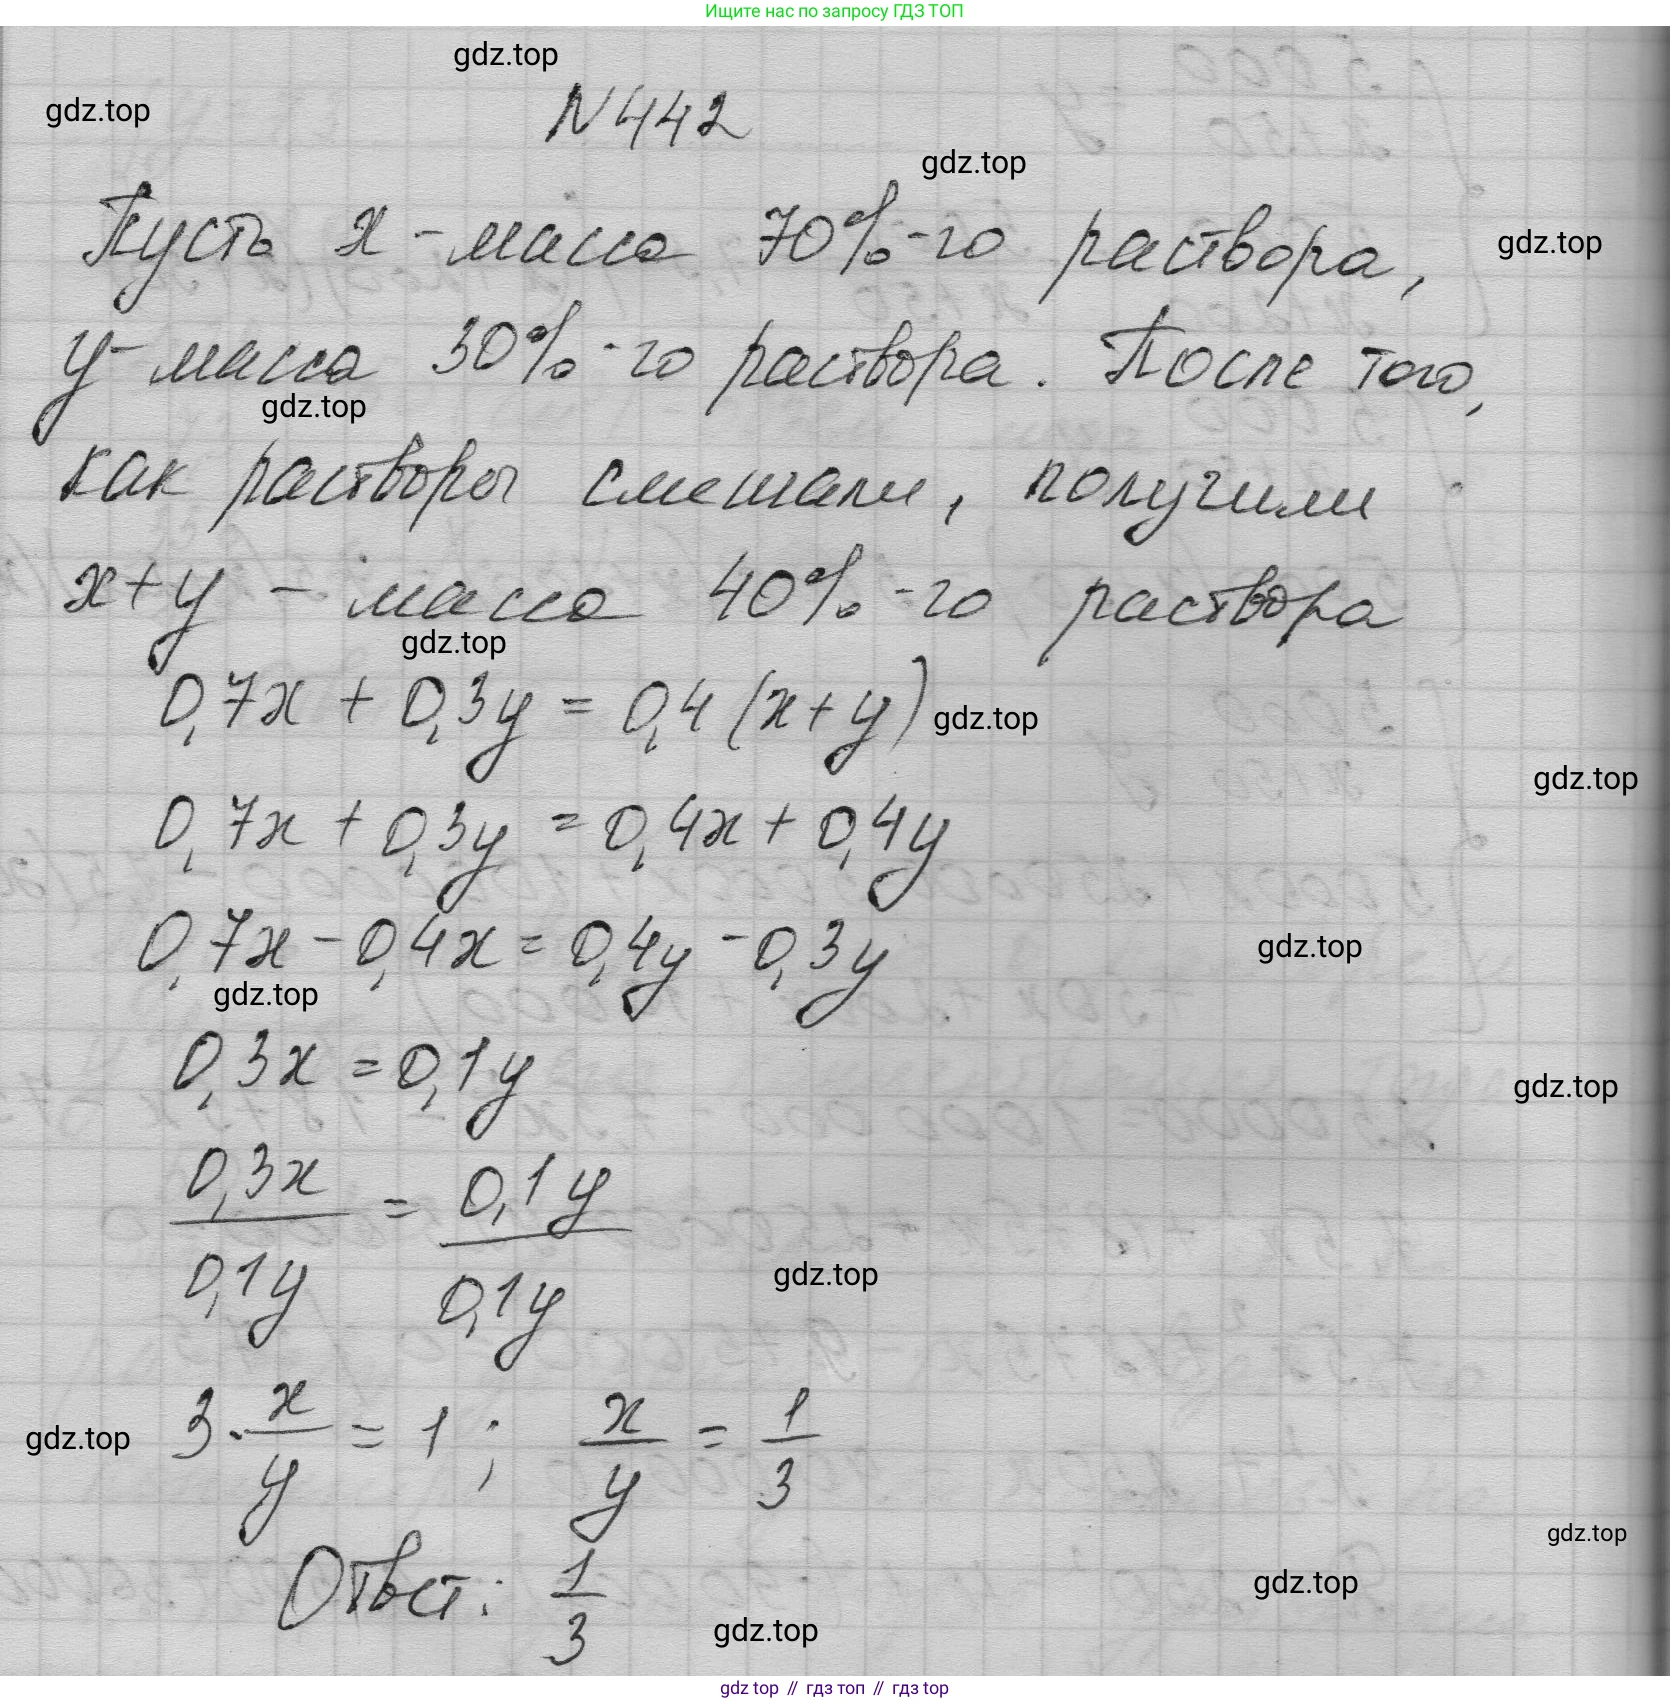 Ищите нас по запросу ГДЗ ТОП
gdz.top
gdz.top
N 442
gdz.top
Пусть x - масса 70%-го раствора,
gdz.top
y - масса 30%-го раствора. После того,
gdz.top
как растворы смешали, получили
x+y - масса 40%-го раствора
gdz.top
0,7x + 0,3y = 0,4(x+y)
gdz.top
gdz.top
0,7x + 0,3y = 0,4x + 0,4y
0,7x - 0,4x = 0,4y - 0,3y
gdz.top
gdz.top
0,3x = 0,1y
gdz.top
0,3x/0,1y = 0,1y/0,1y
gdz.top
3·x/y = 1; x/y = 1/3
gdz.top
gdz.top
Ответ: 1/3
gdz.top
gdz.top
gdz top // гдз топ // гдз top